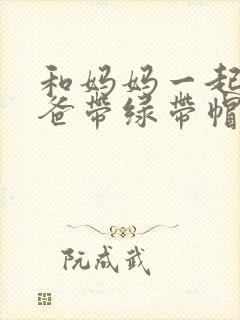 和妈妈一起
爸带绿带帽
阮成武